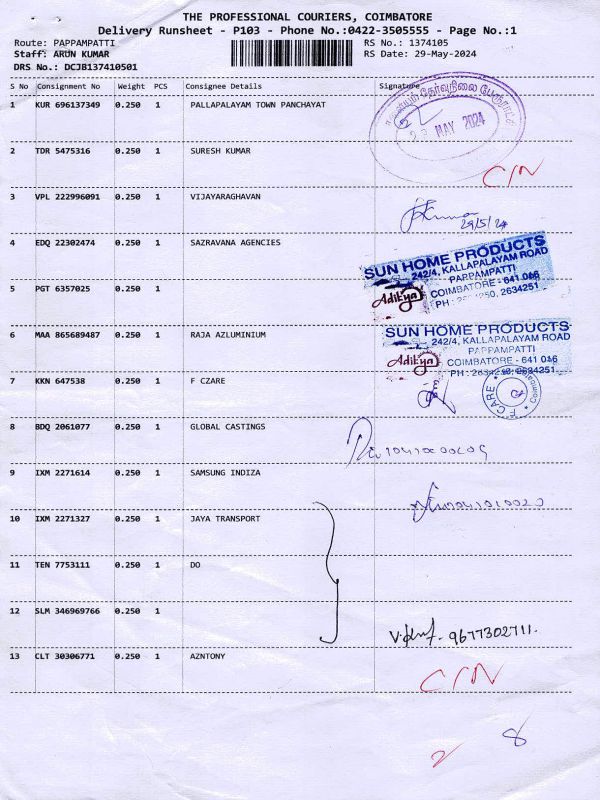 THE PROFESSIONAL COURIERS, COIMBATORE
Delivery Runsheet - P103 - Phone No.:0422-3505555 - Page No.:1
Route: PAPPAMPATTI RS No.: 1374105
Staff: ARUN KUMAR RS Date: 29-May-2024
DRS No.: DCJB137410501
S No Consignment No Weight PCS Consignee Details Signature
1 KUR 696137349 0.250 1 PALLAPALAYAM TOWN PANCHAYAT
MAY 2024
2 TDR 5475316 0.250 1 SURESH KUMAR
C/N
3 VPL 222996091 0.250 1 VIJAYARAGHAVAN
29/5/24
4 EDQ 22302474 0.250 1 SAZRAVANA AGENCIES
SUN HOME PRODUCTS
242/4, KALLAPALAYAM ROAD
PAPPAMPATTI
5 PGT 6357025 0.250 1
Aditya COIMBATORE - 641 016
PH : 2634251
6 MAA 865689487 0.250 1 RAJA AZLUMINIUM
SUN HOME PRODUCTS
242/4, KALLAPALAYAM ROAD
PAPPAMPATTI
Aditya COIMBATORE - 641 016
PH : 2634251
7 KKN 647538 0.250 1 F CZARE
F CARE
8 BDQ 2061077 0.250 1 GLOBAL CASTINGS
9 IXM 2271614 0.250 1 SAMSUNG INDIZA
10 IXM 2271327 0.250 1 JAYA TRANSPORT
11 TEN 7753111 0.250 1 DO
12 SLM 346969766 0.250 1
9677302711.
13 CLT 30306771 0.250 1 AZNTONY
C/N
2 8